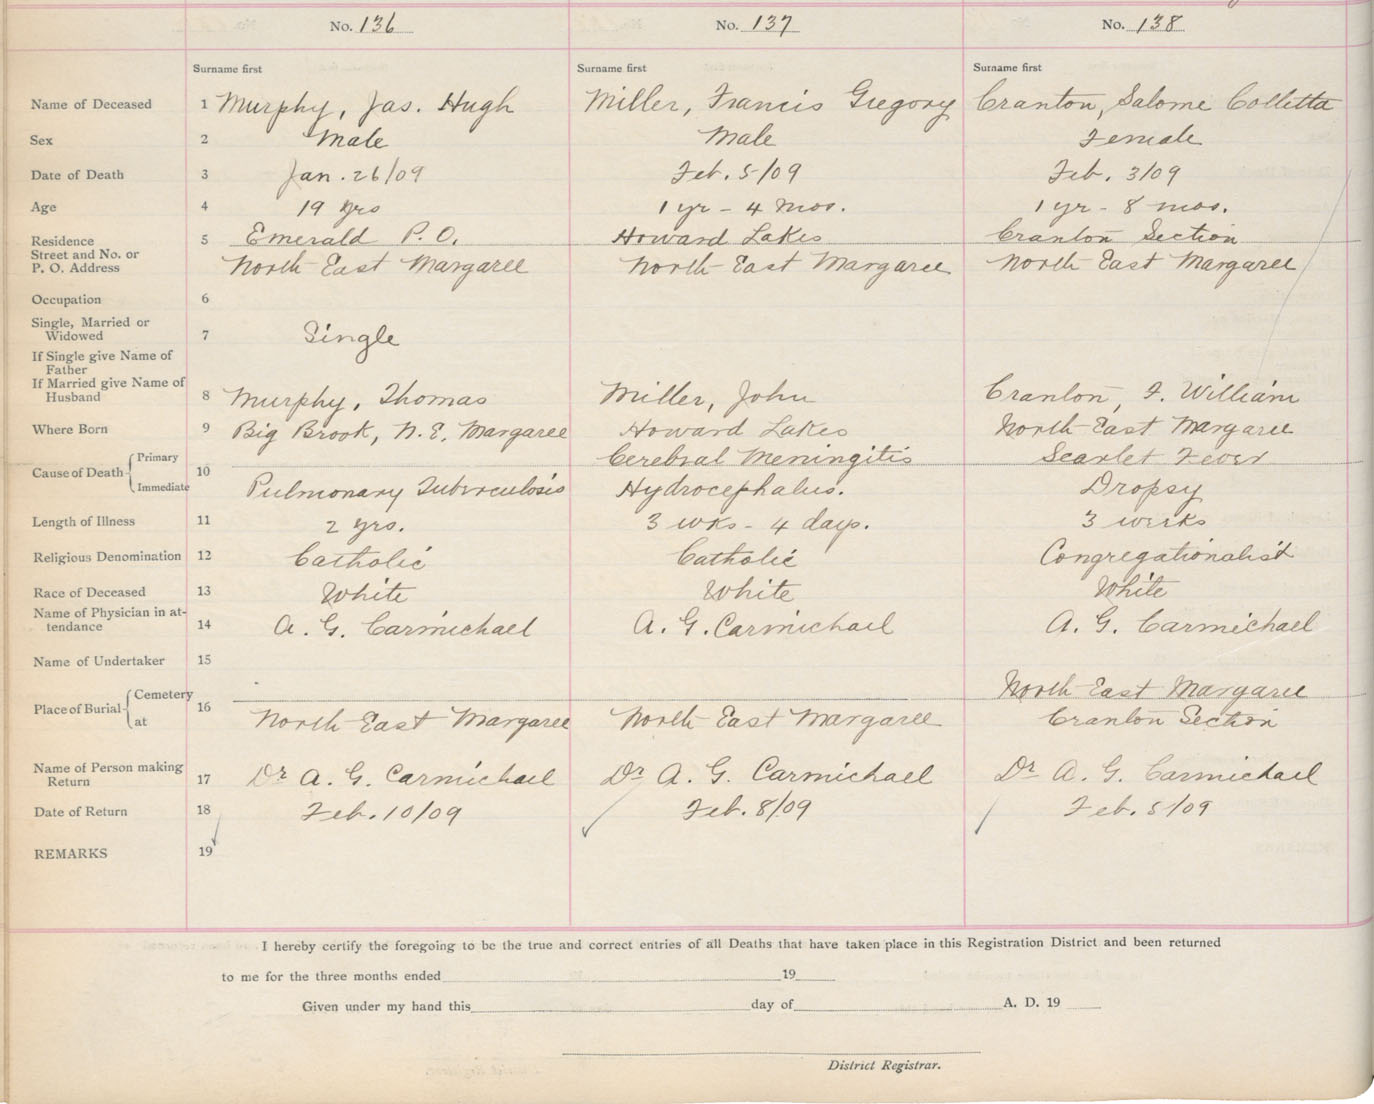 No. 136 No. 137 No. 138
Surname first Surname first Surname first
Name of Deceased 1 Murphy, Jas. Hugh Miller, Francis Gregory Cranton, Salome Colletta
Sex 2 Male Male Female
Date of Death 3 Jan. 26/09 Feb. 5/09 Feb. 3/09
Age 4 19 yrs 1 yr - 4 mos. 1 yr - 8 mos.
Residence 5 Emerald P. O. Howard Lakes Cranton Section
Street and No. or
P. O. Address North East Margaree North East Margaree North East Margaree
Occupation 6
Single, Married or
Widowed 7 Single
If Single give Name of
Father
If Married give Name of
Husband 8 Murphy, Thomas Miller, John Cranton, F. William
Where Born 9 Big Brook, N. E. Margaree Howard Lakes North East Margaree
Primary Cerebral Meningitis Scarlet Fever
Cause of Death 10
Immediate Pulmonary Tuberculosis Hydrocephalus. Dropsy
Length of Illness 11 2 yrs. 3 wks - 4 days. 3 weeks
Religious Denomination 12 Catholic Catholic Congregationalist
Race of Deceased 13 White White White
Name of Physician in at-
tendance 14 A. G. Carmichael A. G. Carmichael A. G. Carmichael
Name of Undertaker 15
Cemetery North East Margaree
Place of Burial 16
at North East Margaree North East Margaree Cranton Section
Name of Person making
Return 17 Dr A. G. Carmichael Dr A. G. Carmichael Dr A. G. Carmichael
Date of Return 18 Feb. 10/09 Feb. 8/09 Feb. 5/09
REMARKS 19
I hereby certify the foregoing to be the true and correct entries of all Deaths that have taken place in this Registration District and been returned
to me for the three months ended 19
Given under my hand this day of A. D. 19
District Registrar.